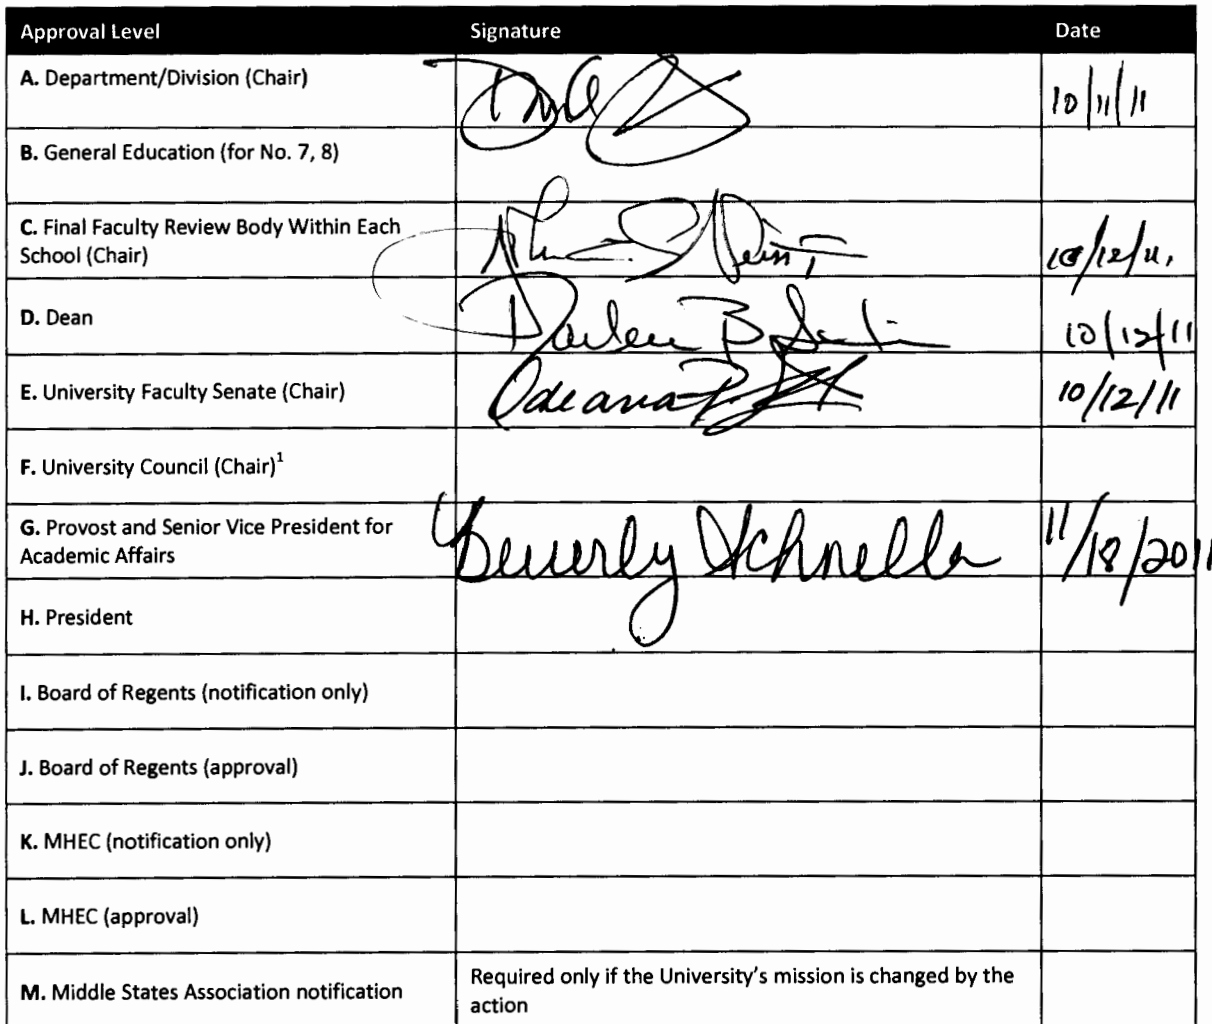 Approval Level Signature Date
A. Department/Division (Chair) 10/11/11
B. General Education (for No. 7, 8)
C. Final Faculty Review Body Within Each
School (Chair) 10/12/11
D. Dean Darlene B 10/12/11
E. University Faculty Senate (Chair) 10/12/11
F. University Council (Chair)¹
G. Provost and Senior Vice President for
Academic Affairs Beverly Schnella 11/18/2011
H. President
I. Board of Regents (notification only)
J. Board of Regents (approval)
K. MHEC (notification only)
L. MHEC (approval)
M. Middle States Association notification Required only if the University's mission is changed by the
action